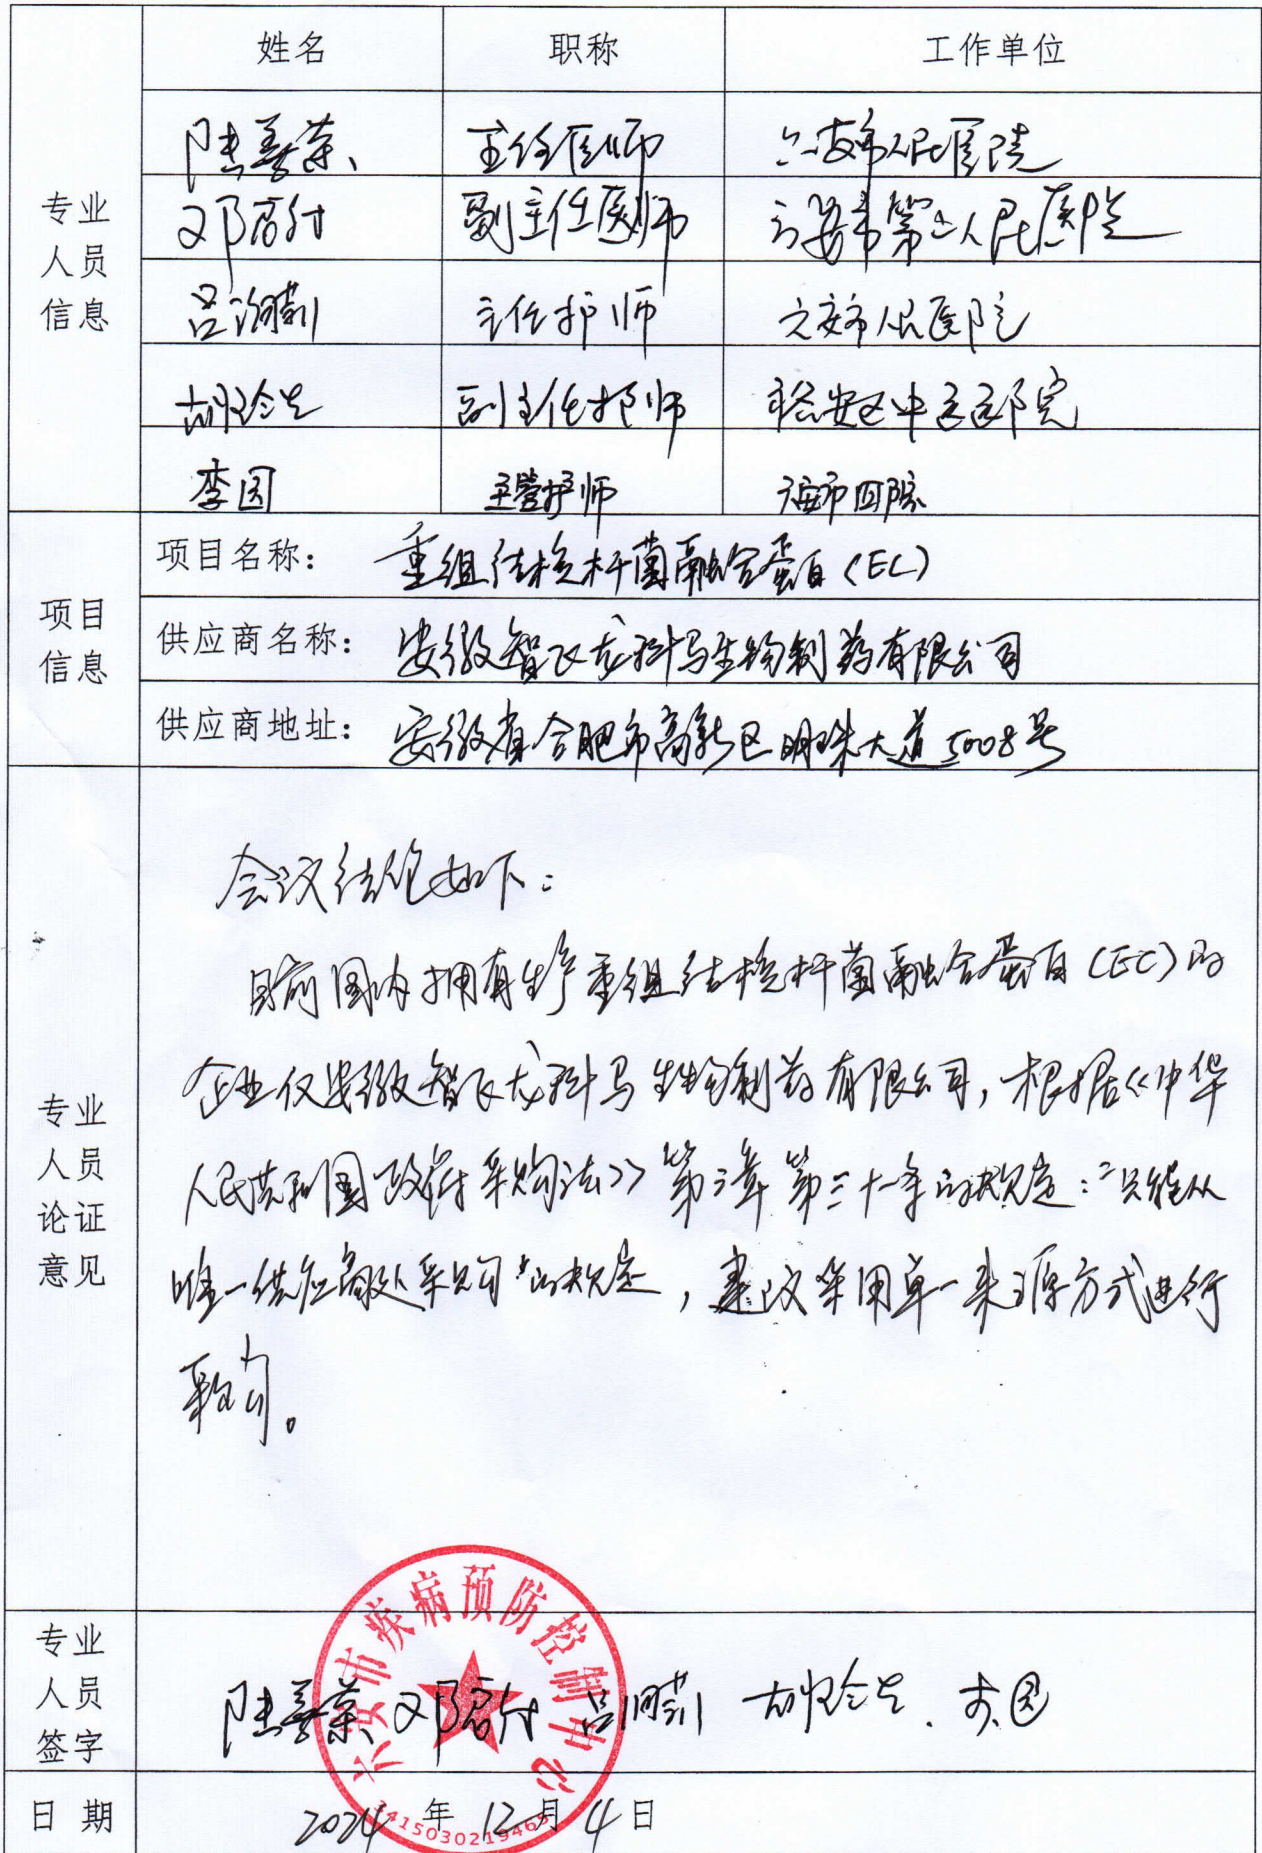 姓名 职称 工作单位
专业人员信息
陆善荣 主任医师 六安市人民医院
邓启付 副主任医师 六安市第二人民医院
吕 莉 主任护师 六安市人民医院
胡 副主任护师 裕安区中医医院
李园 主管护师 六安市四院
项目信息
项目名称: 重组结核杆菌融合蛋白(EC)
供应商名称: 安徽智飞龙科马生物制药有限公司
供应商地址: 安徽省合肥市高新区明珠大道5008号
专业人员论证意见
会议结论如下:
目前国内拥有生产重组结核杆菌融合蛋白(EC)的
企业仅安徽智飞龙科马生物制药有限公司,根据《中华
人民共和国政府采购法》第三章第三十一条的规定:“只能从
唯一供应商处采购”的规定,建议采用单一来源方式进行
采购。
专业人员签字
陆善荣 邓启付 吕 莉 胡 李园
六安市疾病预防控制中心
日期 2024年12月4日